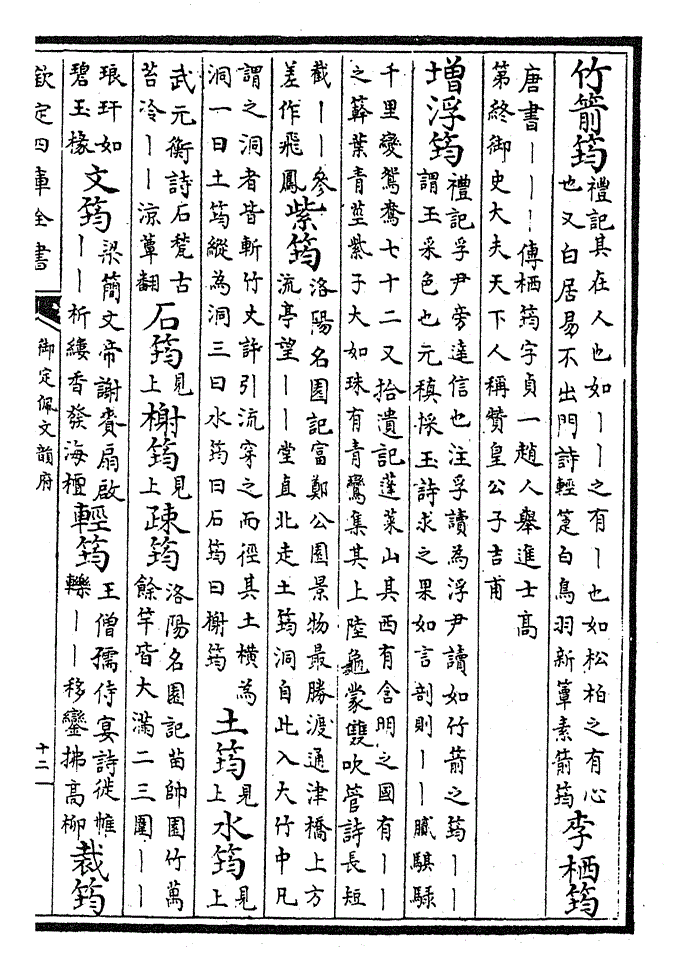 竹箭筠
禮記其在人也如丨丨之有丨也如松柏之有心
也又白居易不出門詩輕箑白鳥羽新簟素箭筠
李栖筠
唐書丨丨丨傳栖筠字貞一趙人舉進士高
第終御史大夫天下人稱贊皇公子吉甫
增浮筠
禮記孚尹旁達信也注孚讀為浮尹讀如竹箭之筠丨丨
謂玉采色也元稹採玉詩求之果如言剖則丨丨膩騏騄
千里變鴛鴦七十二又拾遺記蓬萊山其西有含明之國有丨丨
之簳葉青莖紫子大如珠有青鸞集其上陸龜蒙雙吹管詩長短
截丨丨參
差作飛鳳
紫筠
洛陽名園記富鄭公園景物最勝渡通津橋上方
流亭望丨丨堂直北走土筠洞自此入大竹中凡
謂之洞者皆斬竹丈許引流穿之而徑其土橫為
洞一曰土筠縱為洞三曰水筠曰石筠曰榭筠
土筠
見上
水筠
見上
武元衡詩石甃古
苔冷丨丨涼簟翻
石筠
見上
榭筠
見上
疎筠
洛陽名園記苗帥園竹萬
餘竿皆大滿二三圍丨丨
琅玕如
碧玉椽
文筠
梁簡文帝謝賚扇啟
丨丨析縷香發海檀
輕筠
王僧孺侍宴詩徙帷
轢丨丨移鑾拂高柳
裁筠
欽定四庫全書
御定佩文韻府
十二